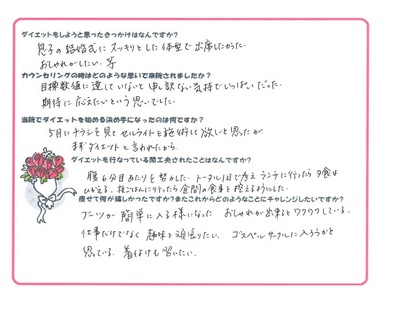 ダイエットをしようと思ったきっかけはなんですか？
息子の結婚式にスッキリとした体型で出席したかった
おしゃれがしたい 等
カウンセリングの時はどのような思いで来院されましたか？
目標数値に達していないと申し訳ない気持でいっぱいだった。
期待に応えたいという思いでした。
当院でダイエットを始める決め手になったのは何ですか？
5月にチラシを見てセルライトを施術して欲しいと思ったが
まずダイエットと言われたから。
ダイエットを行なっている間工夫されたことはなんですか？
腹6分目あたりを努力した。トータル1日で考えランチに行ったら夕食は
ひかえる。晩ごはんに行ったら昼間の食事を控えるようにした。
痩せて何が嬉しかったですか？またこれからどのようなことにチャレンジしたいですか？
ブーツが簡単に入る様になった おしゃれが出来るとワクワクしている。
仕事だけでなく趣味を頑張りたい。ゴスペルサークルに入ろうかと
思っている。着付けも習いたい。